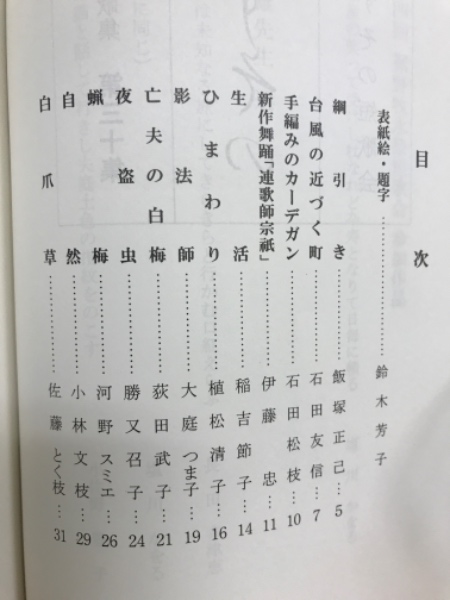 目次
表紙絵・題字……………………鈴木芳子
綱引き……………飯塚正己…5
台風の近づく町……………石田友信…7
手編みのカーデガン……………石田松枝…10
新作舞踊「連歌師宗祇」……………伊藤忠…11
生活……………稲吉節子…14
ひまわり……………植松清子…16
影法師……………大庭つま子…19
亡夫の白梅……………荻田武子…21
夜盗虫……………勝又召子…24
蝋梅……………河野スミエ…26
自然……………小林文枝…29
白爪草……………佐藤とく枝…31